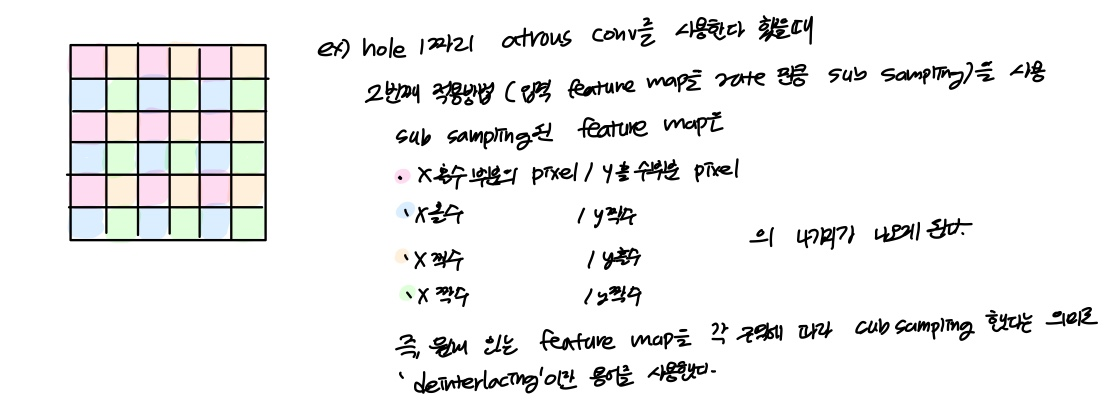 ex) hole 1짜리 atrous conv를 사용한다 했을때
2번째 적용방법 (입력 feature map을 rate 만큼 sub sampling)을 사용
sub sampling된 feature map은
• X홀수부분의 pixel / y홀수부분 pixel
• X홀수 / y짝수
• X짝수 / y홀수
• X짝수 / y짝수
의 4가지가 나오게 된다.
즉, 원래 있는 feature map을 각 구역에 따라 sub sampling 했다는 의미로
'deinterlacing'이란 용어를 사용했다.